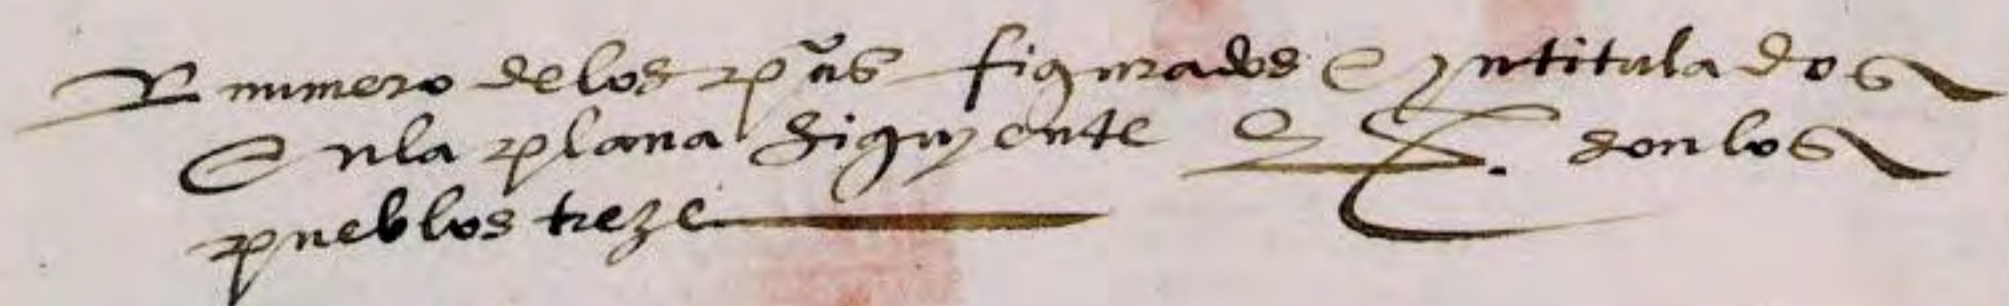 El numero de los pũs figurados e yntitulados
en la plana siguyente son los
pueblos treze